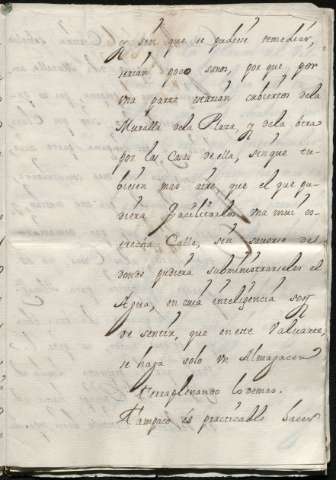 y sin que se pudiese remediar,
serian poco sanos, por que por
una parte estarian cubiertos dela
Muralla dela Plaza, y dela otra
por las Casas de ella, sin que tu-
biesen mas aire, que el que pu-
diera facilitarles una mui es-
trecha Calle, sin
donde pudiera subministrarseles el
Agua, en cuia inteligencia soy
de sentir, que en este Valuarte,
se haga solo un Almagacen
terraplenando lo demas.
Tampoco és practicable hacer